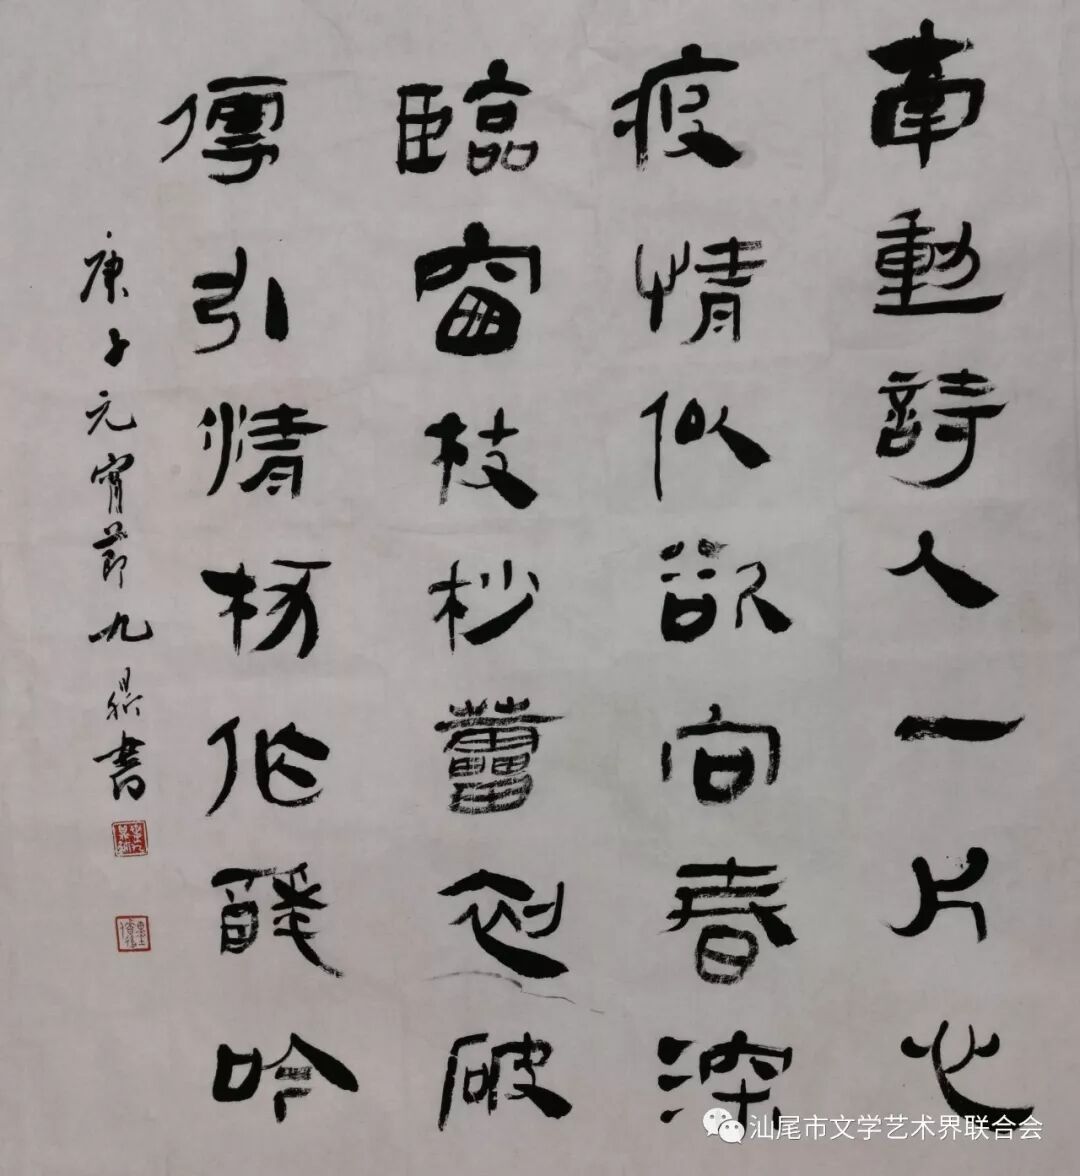 牽動詩人一片心
疫情似欲向春深
臨窗枝杪蕾初破
引情作吟
庚子元宵節九鼎書
汕尾市文学艺术界联合会